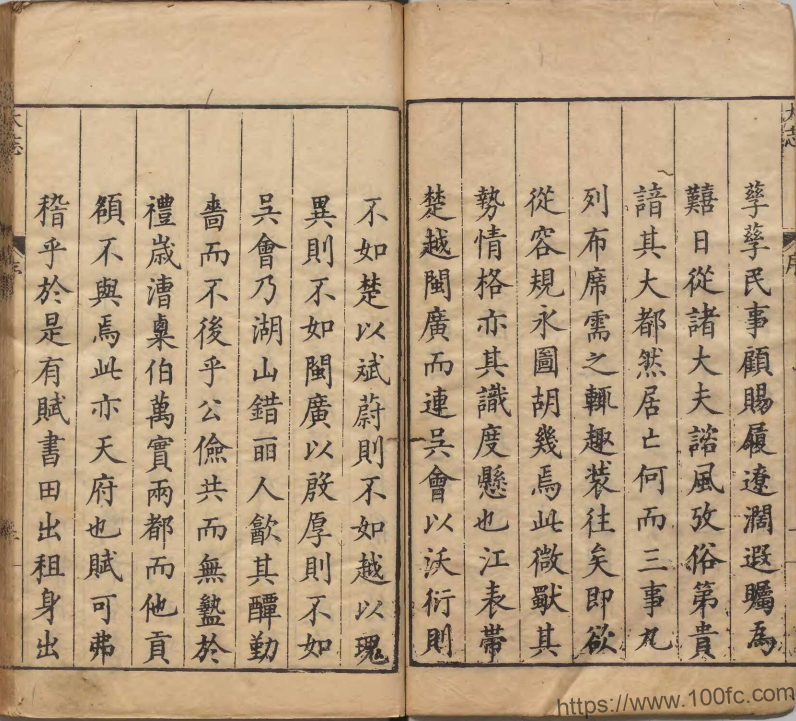 孳孳民事顧賜履遼濶遐矚為
囏日從諸大夫諮風攷俗第貴
諳其大都然居亡何而三事凡
列布席需之輒趣裝往矣即欲
從容規永圖胡幾焉此微獸其
勢情格亦其識度懸也江表帶
楚越閩廣而連吳會以沃衍則
不如楚以斌蔚則不如越以瑰
異則不如閩廣以殷厚則不如
吳會乃湖山錯丽人歙其醰勤
嗇而不後乎公儉共而無盭於
禮歲漕稟伯萬實兩都而他貢
額不與焉此亦天府也賦可弗
稽乎於是有賦書田出租身出
大志
序
大志
序
https://www.100fc.com